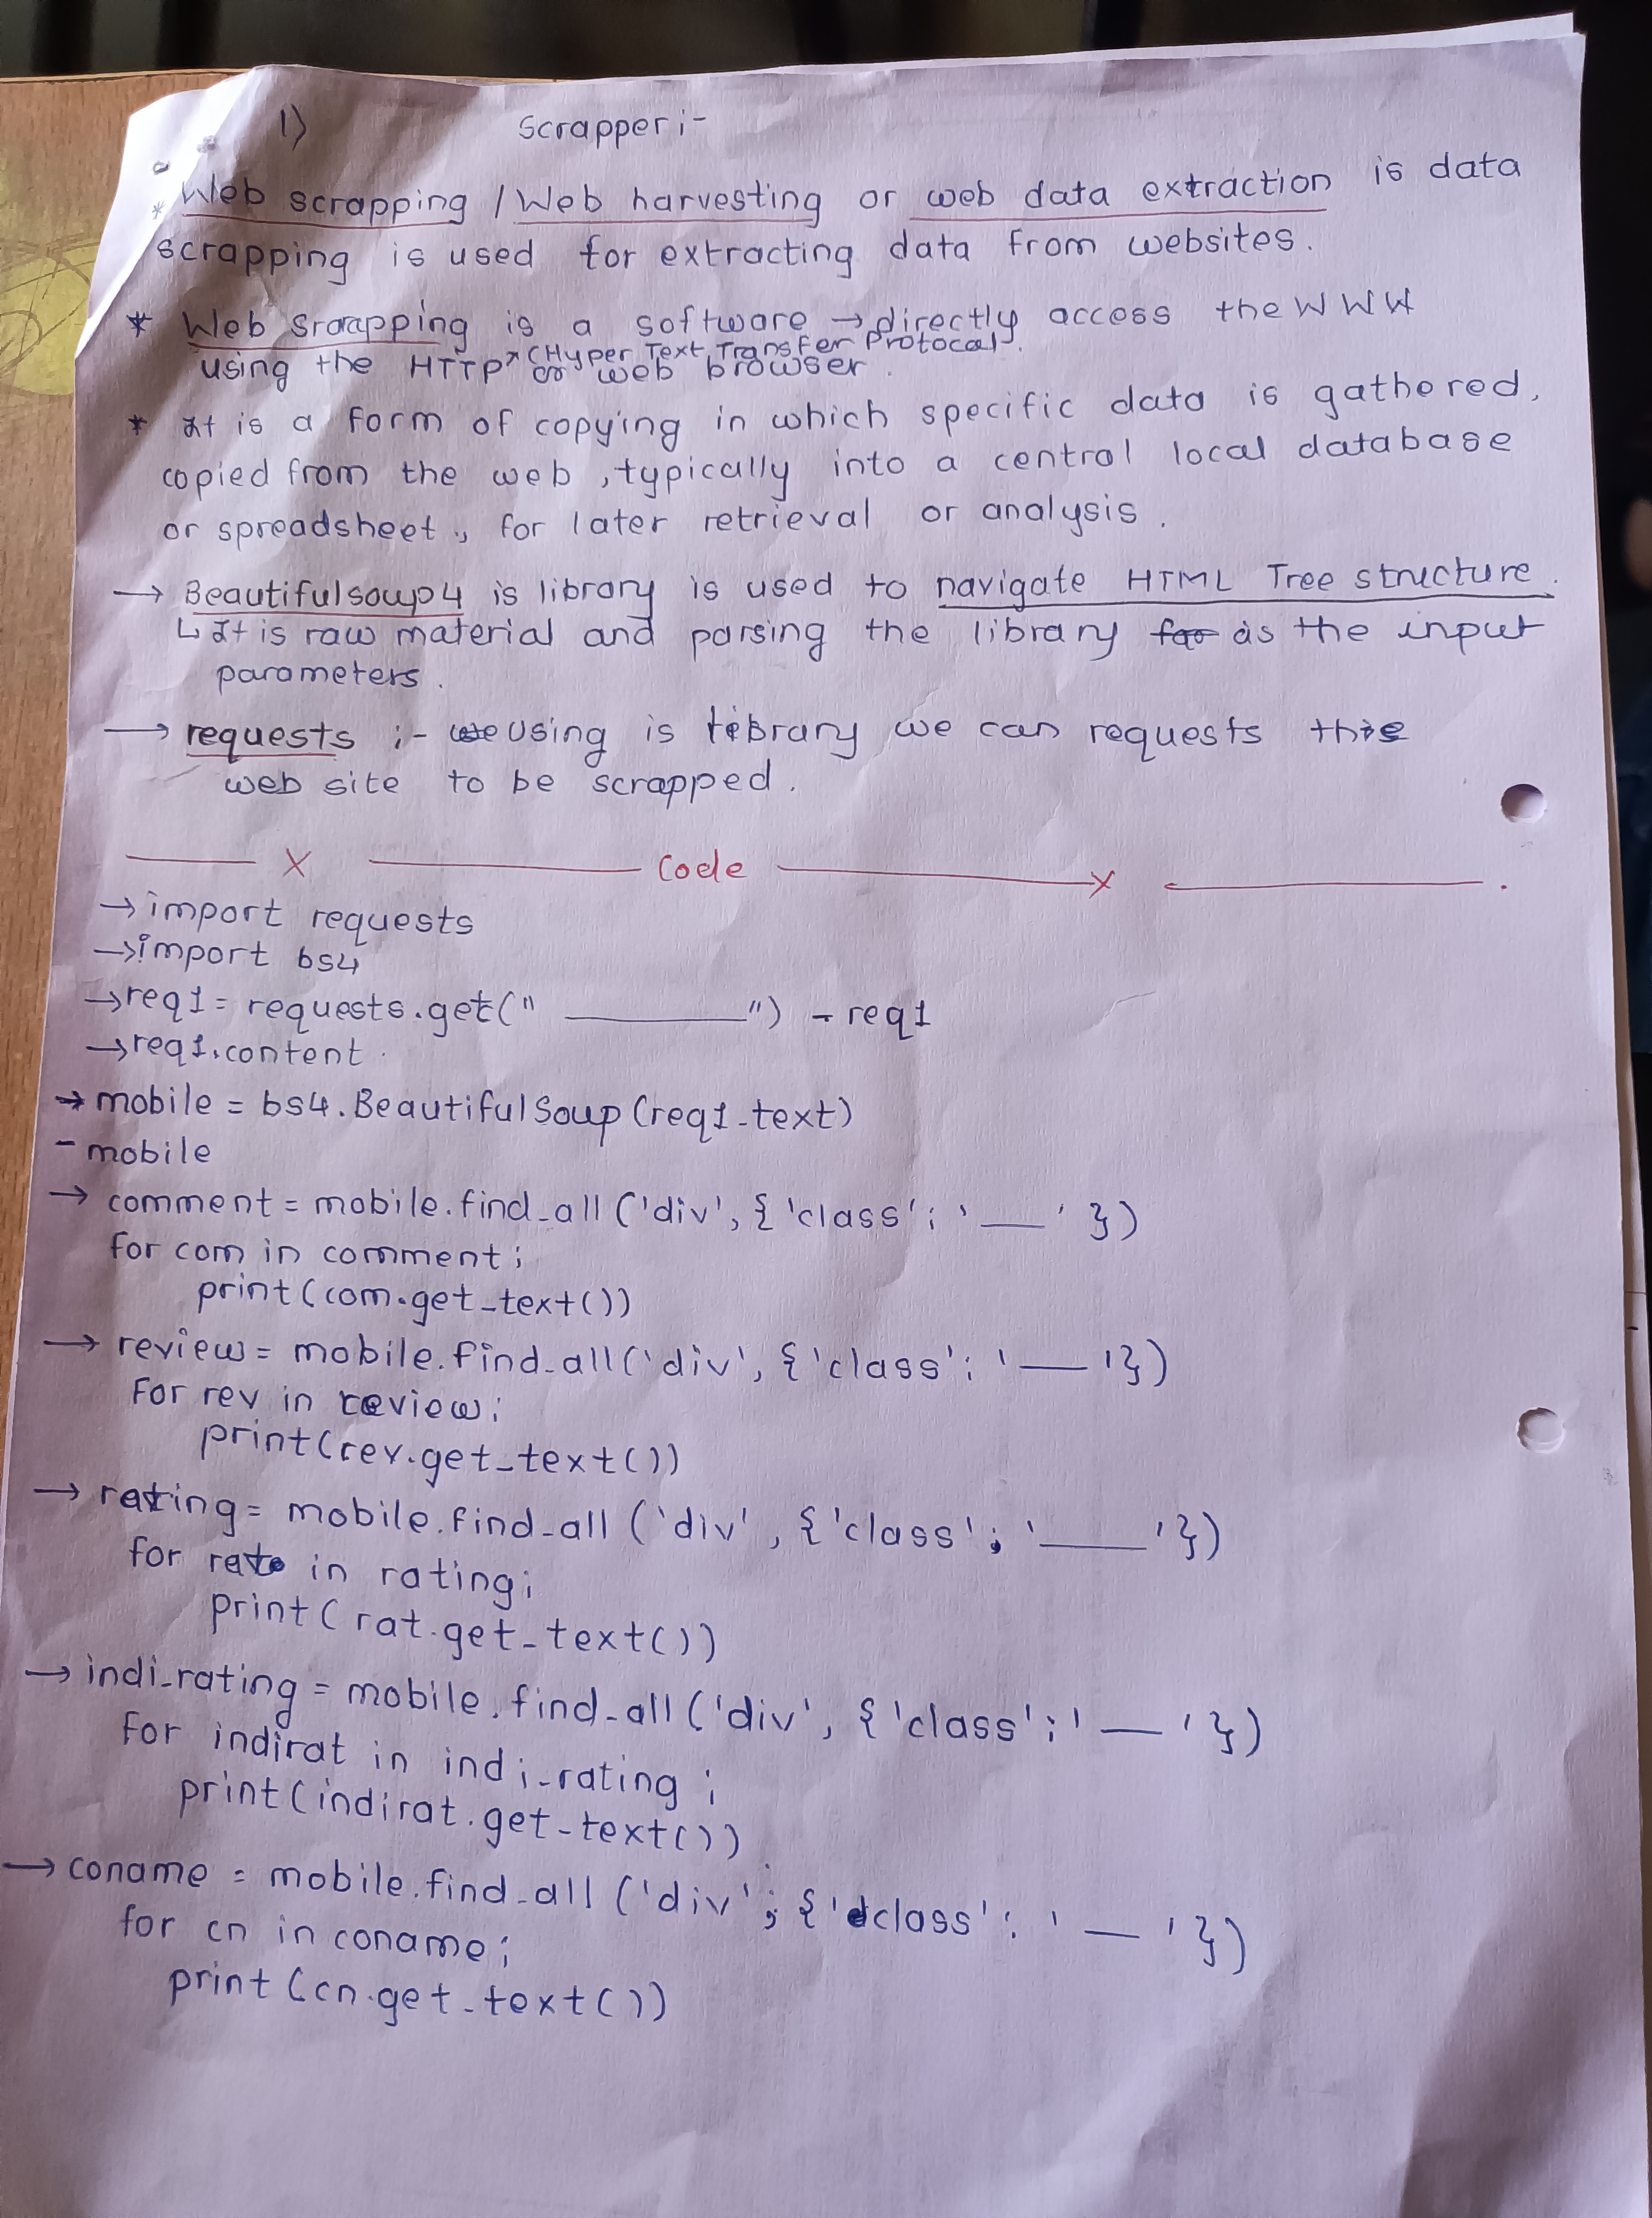 1) Scrapper :-
* Web scrapping / Web harvesting or web data extraction is data
scrapping is used for extracting data from websites.
* Web srcrapping is a software → directly access the WWW
(Hyper Text Transfer Protocal).
using the HTTP or web browser.
* It is a form of copying in which specific data is gathered,
copied from the web, typically into a central local database
or spreadsheet, for later retrieval or analysis.
→ Beautifulsoup4 is library is used to navigate HTML Tree structure.
↳ It is raw material and parsing the library as the input
parameters.
→ requests :- using is library we can requests the
web site to be scrapped.
X Code X
→ import requests
→ import bs4
→ req1 = requests.get("______") - req1
→ req1.content
→ mobile = bs4.BeautifulSoup(req1.text)
- mobile
→ comment = mobile.find_all('div', {'class': '___'})
for com in comment:
print(com.get_text())
→ review = mobile.find_all('div', {'class': '___'})
For rev in review:
print(rev.get_text())
→ rating = mobile.find_all('div', {'class': '____'})
for rate in rating:
print(rat.get_text())
→ indi_rating = mobile.find_all('div', {'class': '___'})
for indirat in indi_rating:
print(indirat.get_text())
→ coname = mobile.find_all('div'; {'class': '__'})
for cn in coname:
print(cn.get_text())